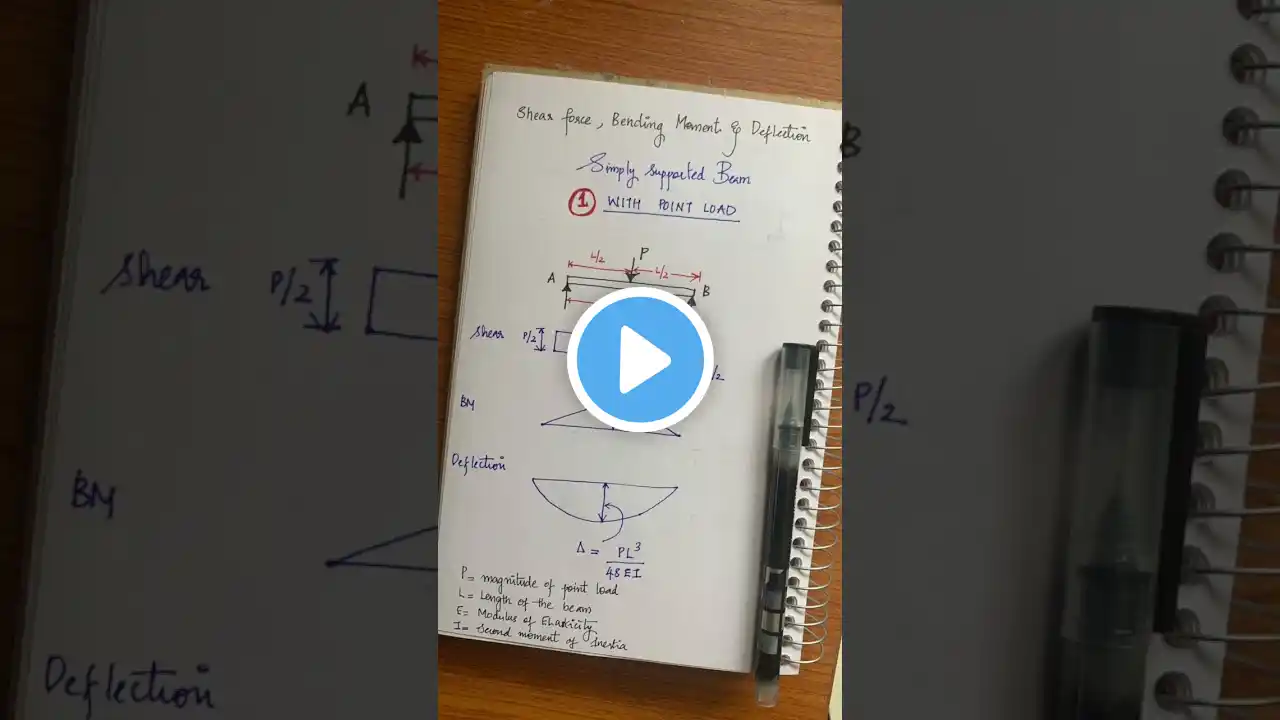 Shear force, Bending Moment & Deflection
Simply supported Beam
1 WITH POINT LOAD
P
L/2 L/2
A B
Shear P/2
/2
BM
Deflection
Δ = PL³
48EI
P= magnitude of point load
L= Length of the beam
E= Modulus of Elasticity
I= Second moment of Inertia
A
B
Shear P/2
P/2
BM
Deflection